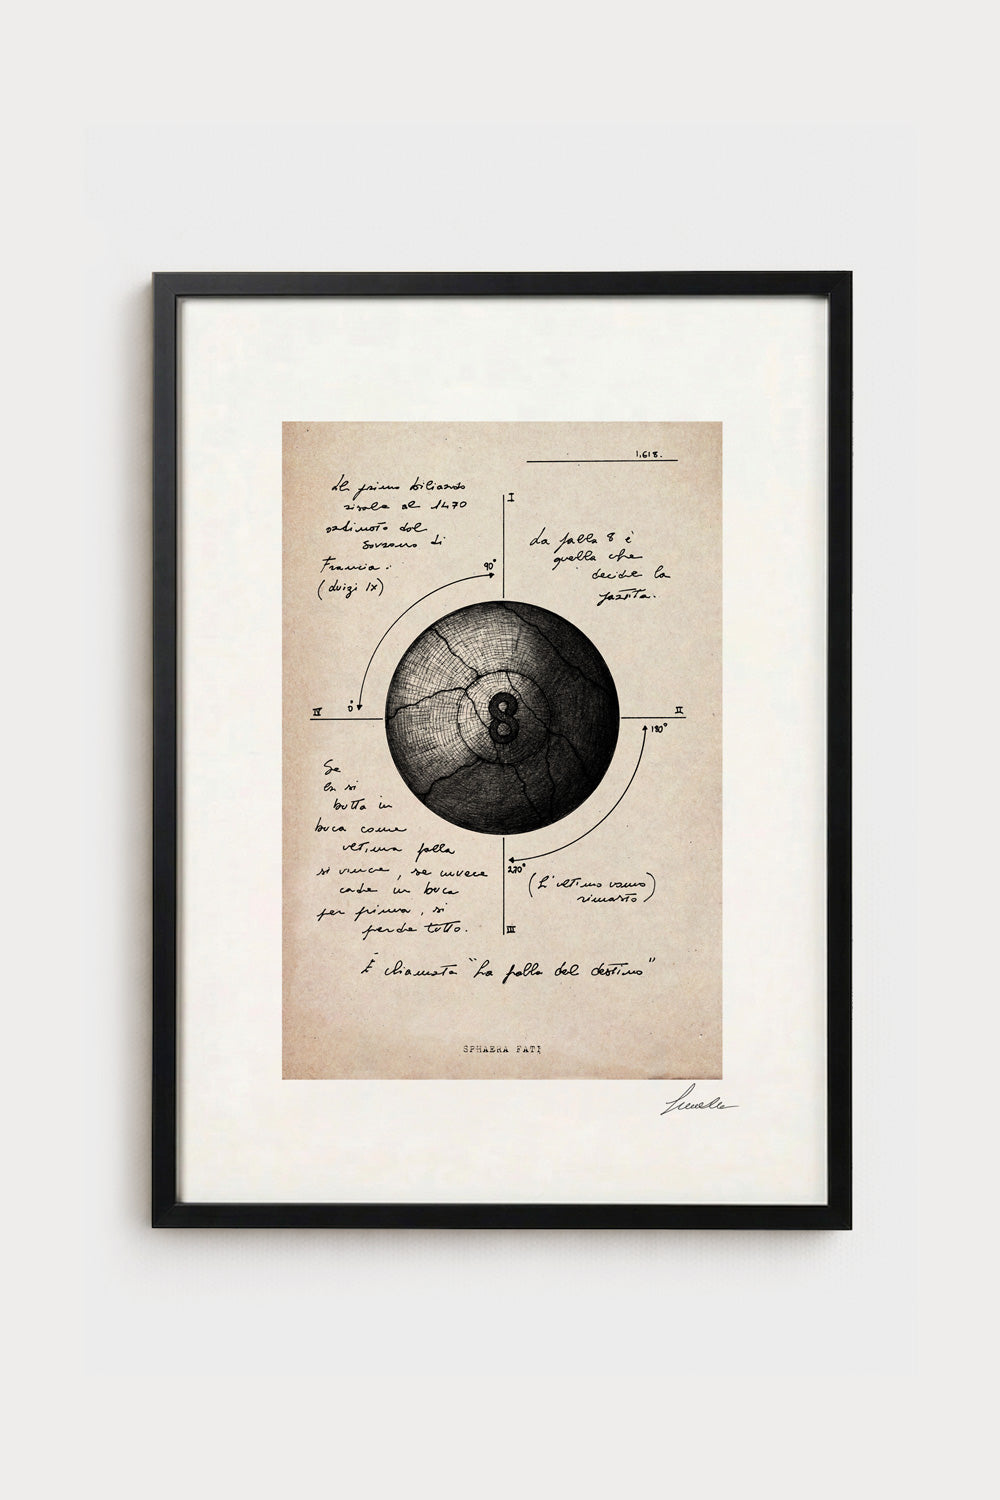 1,618.
Il primo biliardo
risale al 1470
ordinato dal
sovrano di
Francia.
(Luigi IX)
I
La palla 8 è
quella che
decide la
partita.
90°
0°
IV
8
II
180°
Se
la si
butta in
buca come
ultima palla
si vince, se invece
cade in buca
per prima, si
perde tutto.
270°
(L'ultimo uomo
rimasto)
III
È chiamata "La palla del destino"
SPHAERA FATI